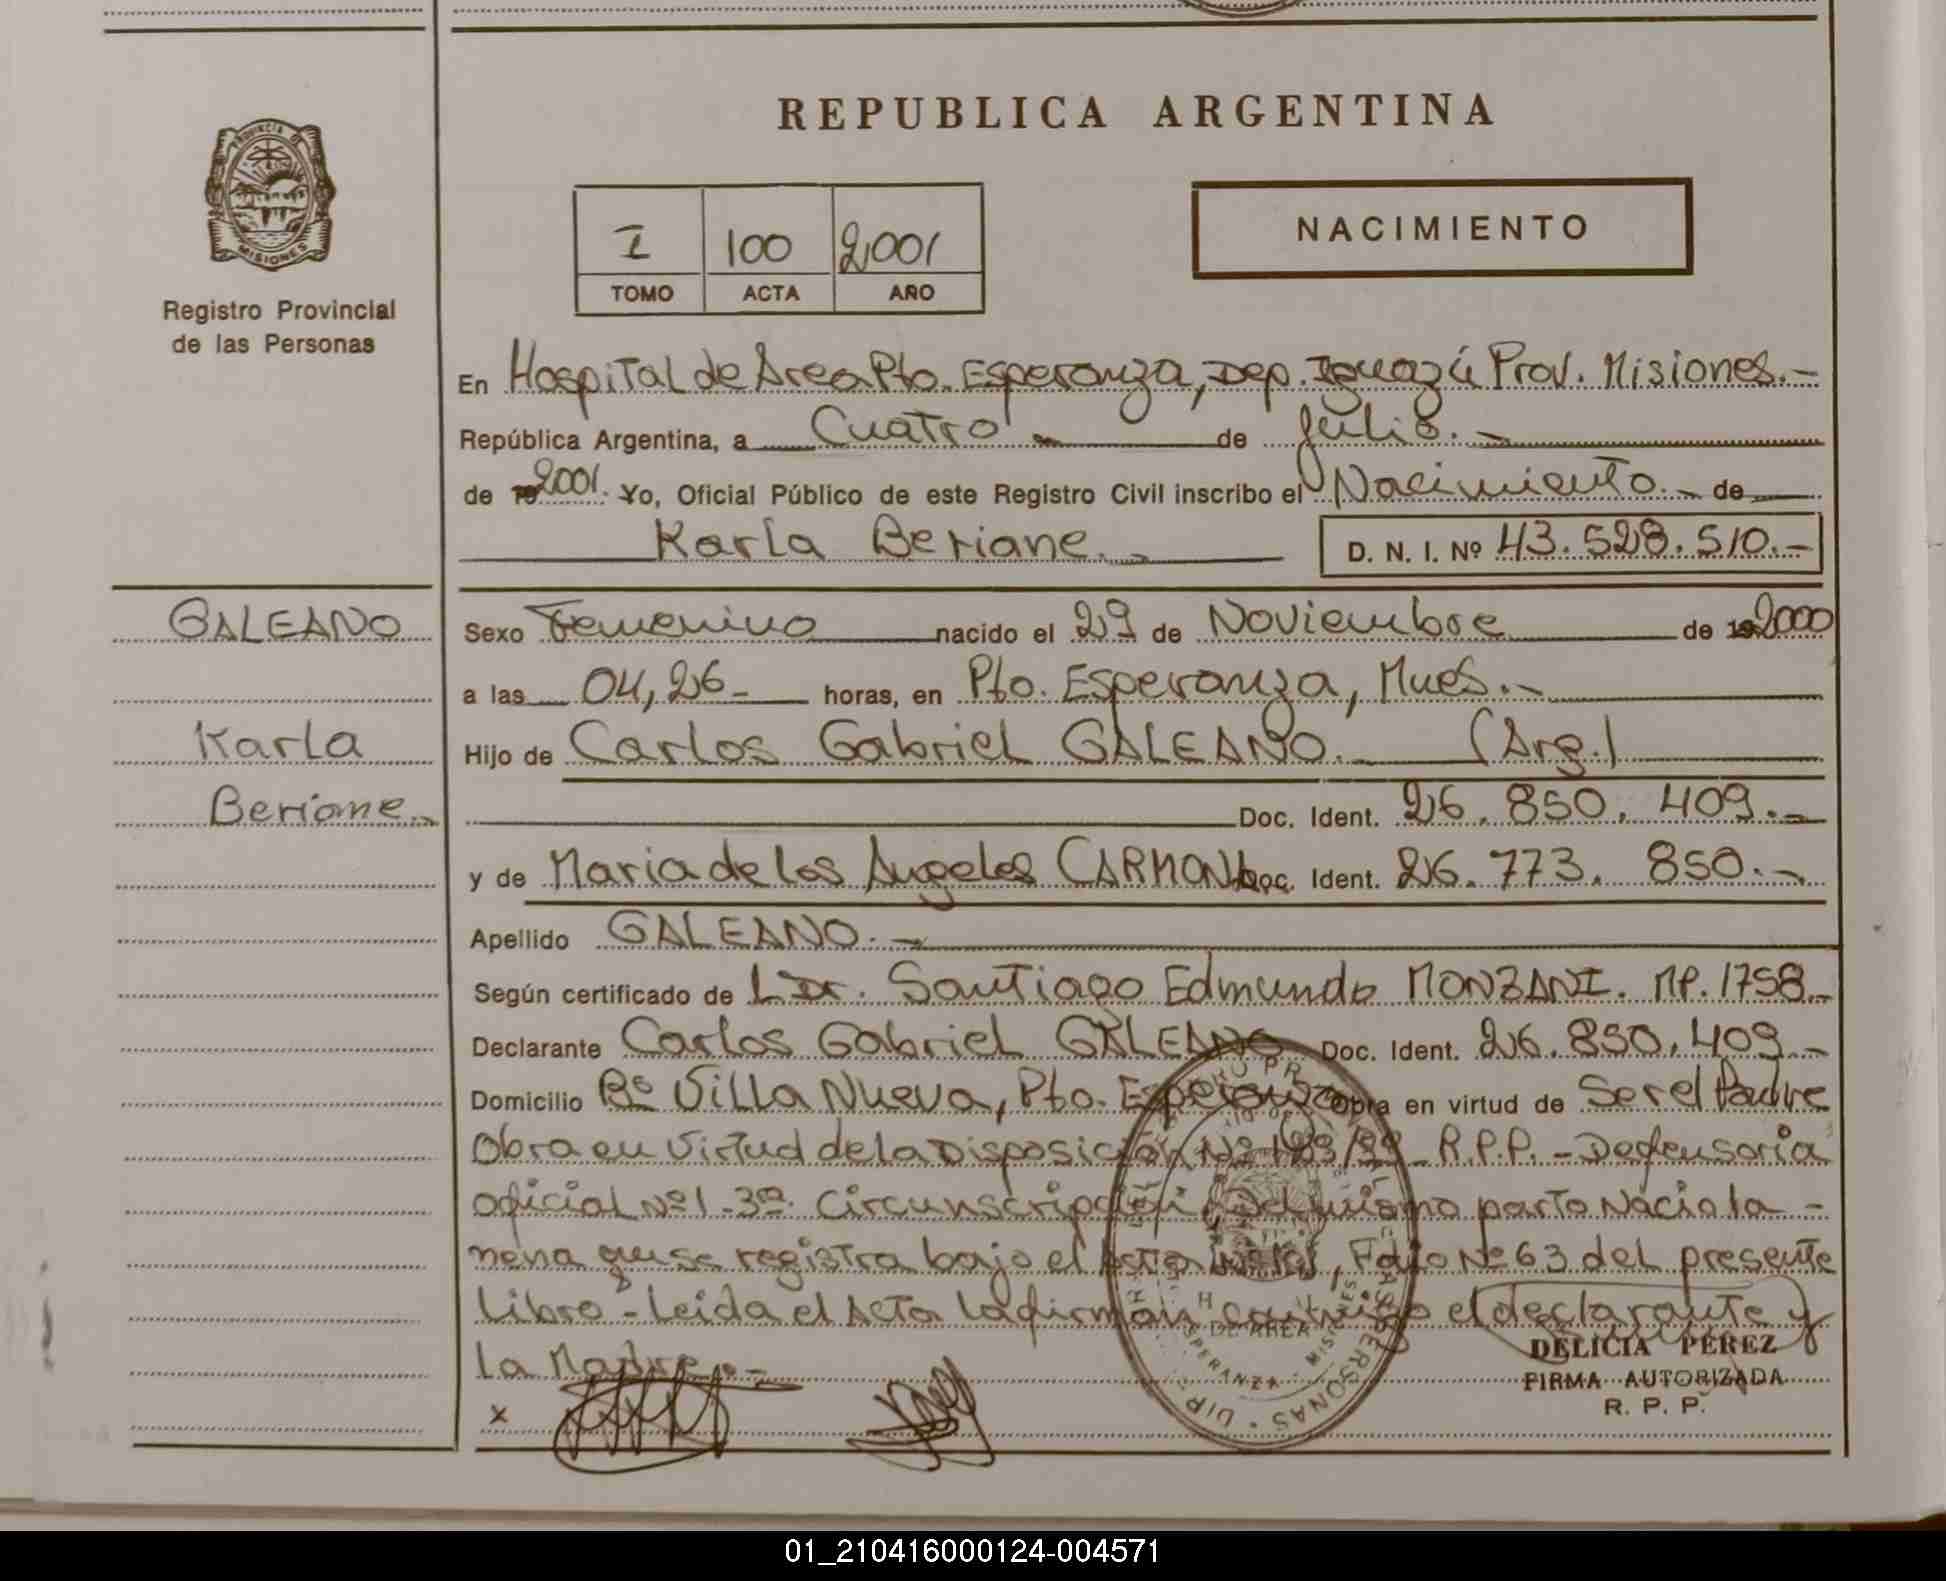 REPUBLICA ARGENTINA
PROVINCIA DE MISIONES
Registro Provincial
de las Personas
I 100 2001
TOMO ACTA AÑO
NACIMIENTO
En Hospital de Area Pto. Esperanza, Dep. Iguazú Prov. Misiones.-
República Argentina, a Cuatro de Julio.-
de 2001. Yo, Oficial Público de este Registro Civil inscribo el Nacimiento.- de
Karla Beriane.-
D. N. I. Nº 43.528.510.-
GALEANO
Karla
Beriane.-
Sexo Femenino nacido el 29 de Noviembre de 2000
a las 04,26- horas, en Pto. Esperanza, Mnes.-
Hijo de Carlos Gabriel GALEANO. (Arg.)
Doc. Ident. 26.850.409.-
y de Maria de los Angeles CARMONA Doc. Ident. 26.773.850.-
Apellido GALEANO.-
Según certificado de Dr. Santiago Edmundo MONZANI. MP. 1758.-
Declarante Carlos Gabriel GALEANO Doc. Ident. 26.850.409-
Domicilio Bº Villa Nueva, Pto. Esperanza Obra en virtud de Ser el Padre
Obra en Virtud de la Disposición Nº /99- R.P.P.- Defensoria
oficial Nº 1-3ra. Circunscripción. Del mismo parto Nacio la-
nena que se registra bajo el Acta Nº 101, Folio Nº 63 del presente
Libro.- Leida el Acta la firman conmigo el declarante y
la Madre.-
DELICIA PEREZ
FIRMA AUTORIZADA
R. P. P.
x
01_210416000124-004571